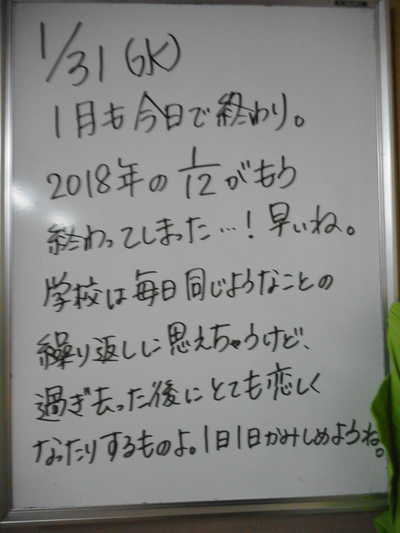 1/31(水)
1月も今日で終わり。
2018年の1/12がもう
終わってしまった…!早いね。
学校は毎日同じようなことの
繰り返しに思えちゃうけど、
過ぎ去った後にとても恋しく
なったりするものよ。1日1日かみしめようね。